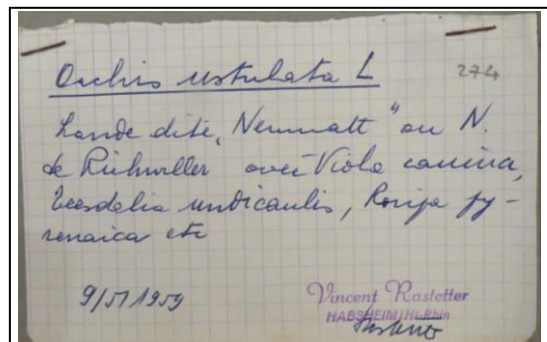 Orchis ustulata L
274
Lande dite „Neumatt" au N.
de Richwiller avec Viola canina,
Teesdalia nudicaulis, Rorippa py-
renaica etc
9/5/1959
Vincent Rastetter
HABSHEIM/Ht-Rhin